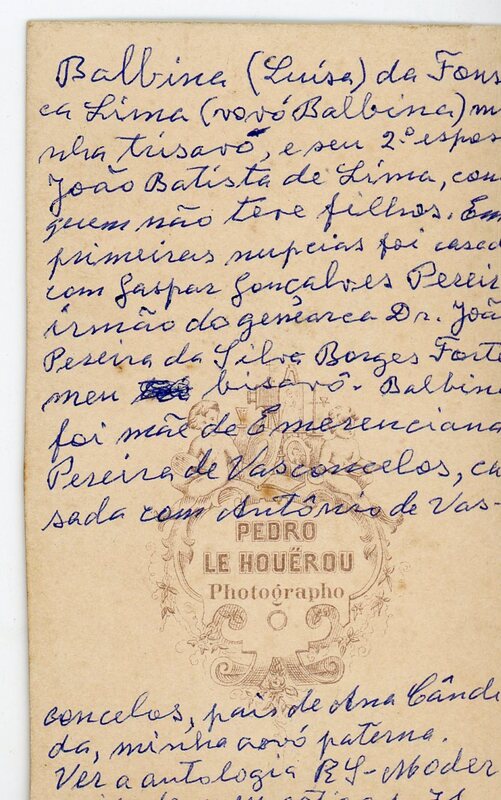 Balbina (Luísa) da Fons
ca Lima (vovó Balbina) mi
nha trisavó, e seu 2.º espos
João Batista de Lima, com
quem não teve filhos. Em
primeiras nupcias foi casad
com Gaspar Gonçalves Pereir
irmão do genearca Dr. João
Pereira da Silva Borges Forte
meu bisavô. Balbina
foi mãe de Emerenciana
Pereira de Vasconcelos, ca
sada com Antônio de Vas-
PEDRO
LE HOUËROU
Photographo
concelos, pais de Ana Cândi
da, minha avó paterna.
Ver a antologia RS-Moder